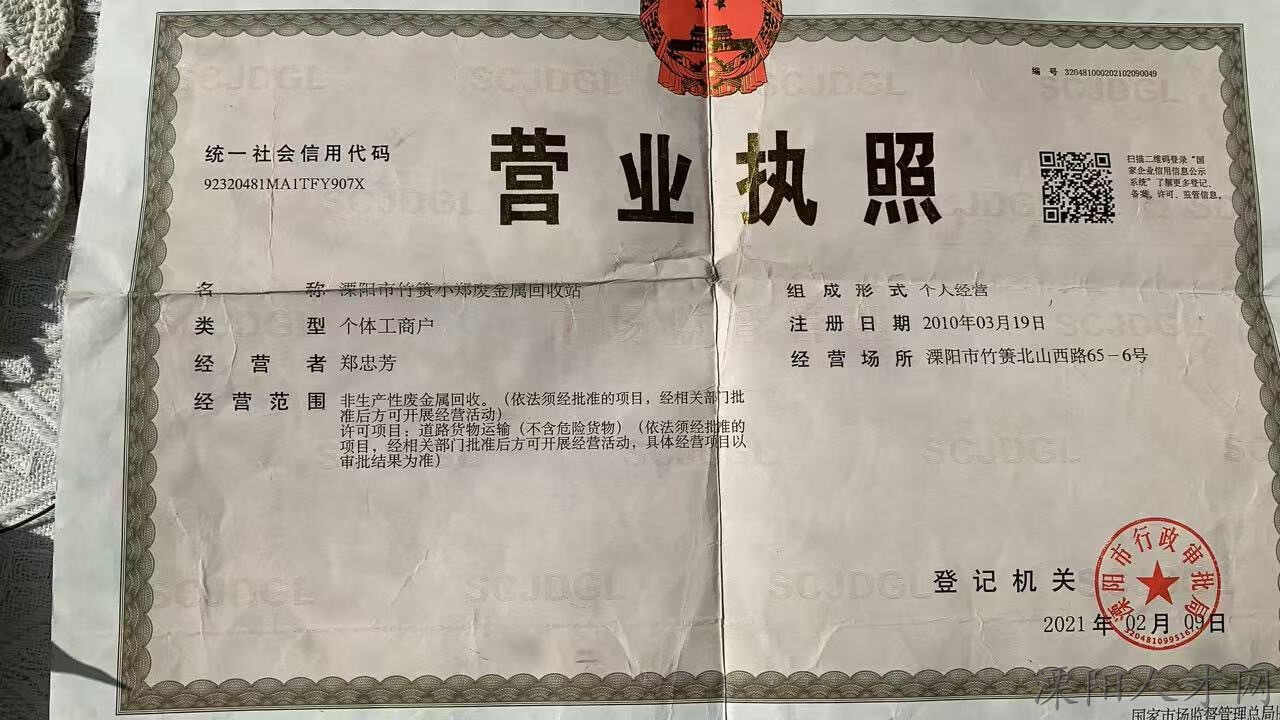 编 号 320481000202102090049
统一社会信用代码
92320481MA1TFY907X
营业执照
扫描二维码登录“国
家企业信用信息公示
系统”了解更多登记、
备案、许可、监管信息。
名 称 溧阳市竹箦小郑废金属回收站
类 型 个体工商户
经 营 者 郑忠芳
经 营 范 围 非生产性废金属回收。(依法须经批准的项目,经相关部门批
准后方可开展经营活动)
许可项目:道路货物运输(不含危险货物)(依法须经批准的
项目,经相关部门批准后方可开展经营活动,具体经营项目以
审批结果为准)
组 成 形 式 个人经营
注 册 日 期 2010年03月19日
经 营 场 所 溧阳市竹箦北山西路65-6号
登 记 机 关
溧阳市行政审批局
2021 年 02 月 09 日
溧阳人才网
国家市场监督管理总局
SCJDGL
SCJDGL
SCJDGL
SCJDGL
SCJDGL
SCJDGL
SCJDGL
SCJDGL